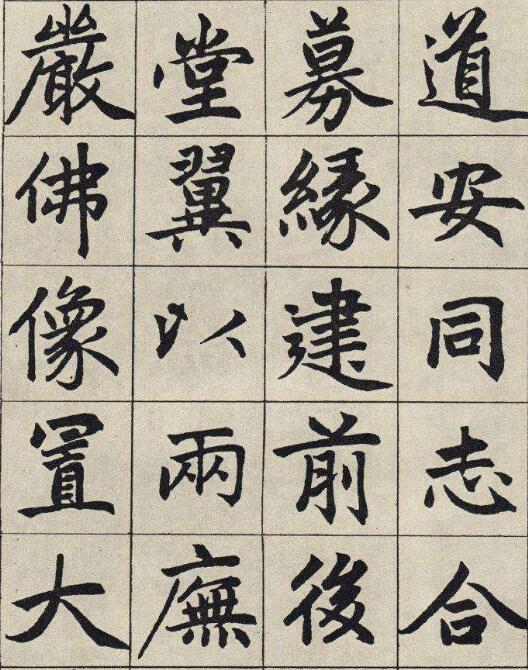 道安同志合
募緣建前後
堂翼以兩廡
嚴佛像置大